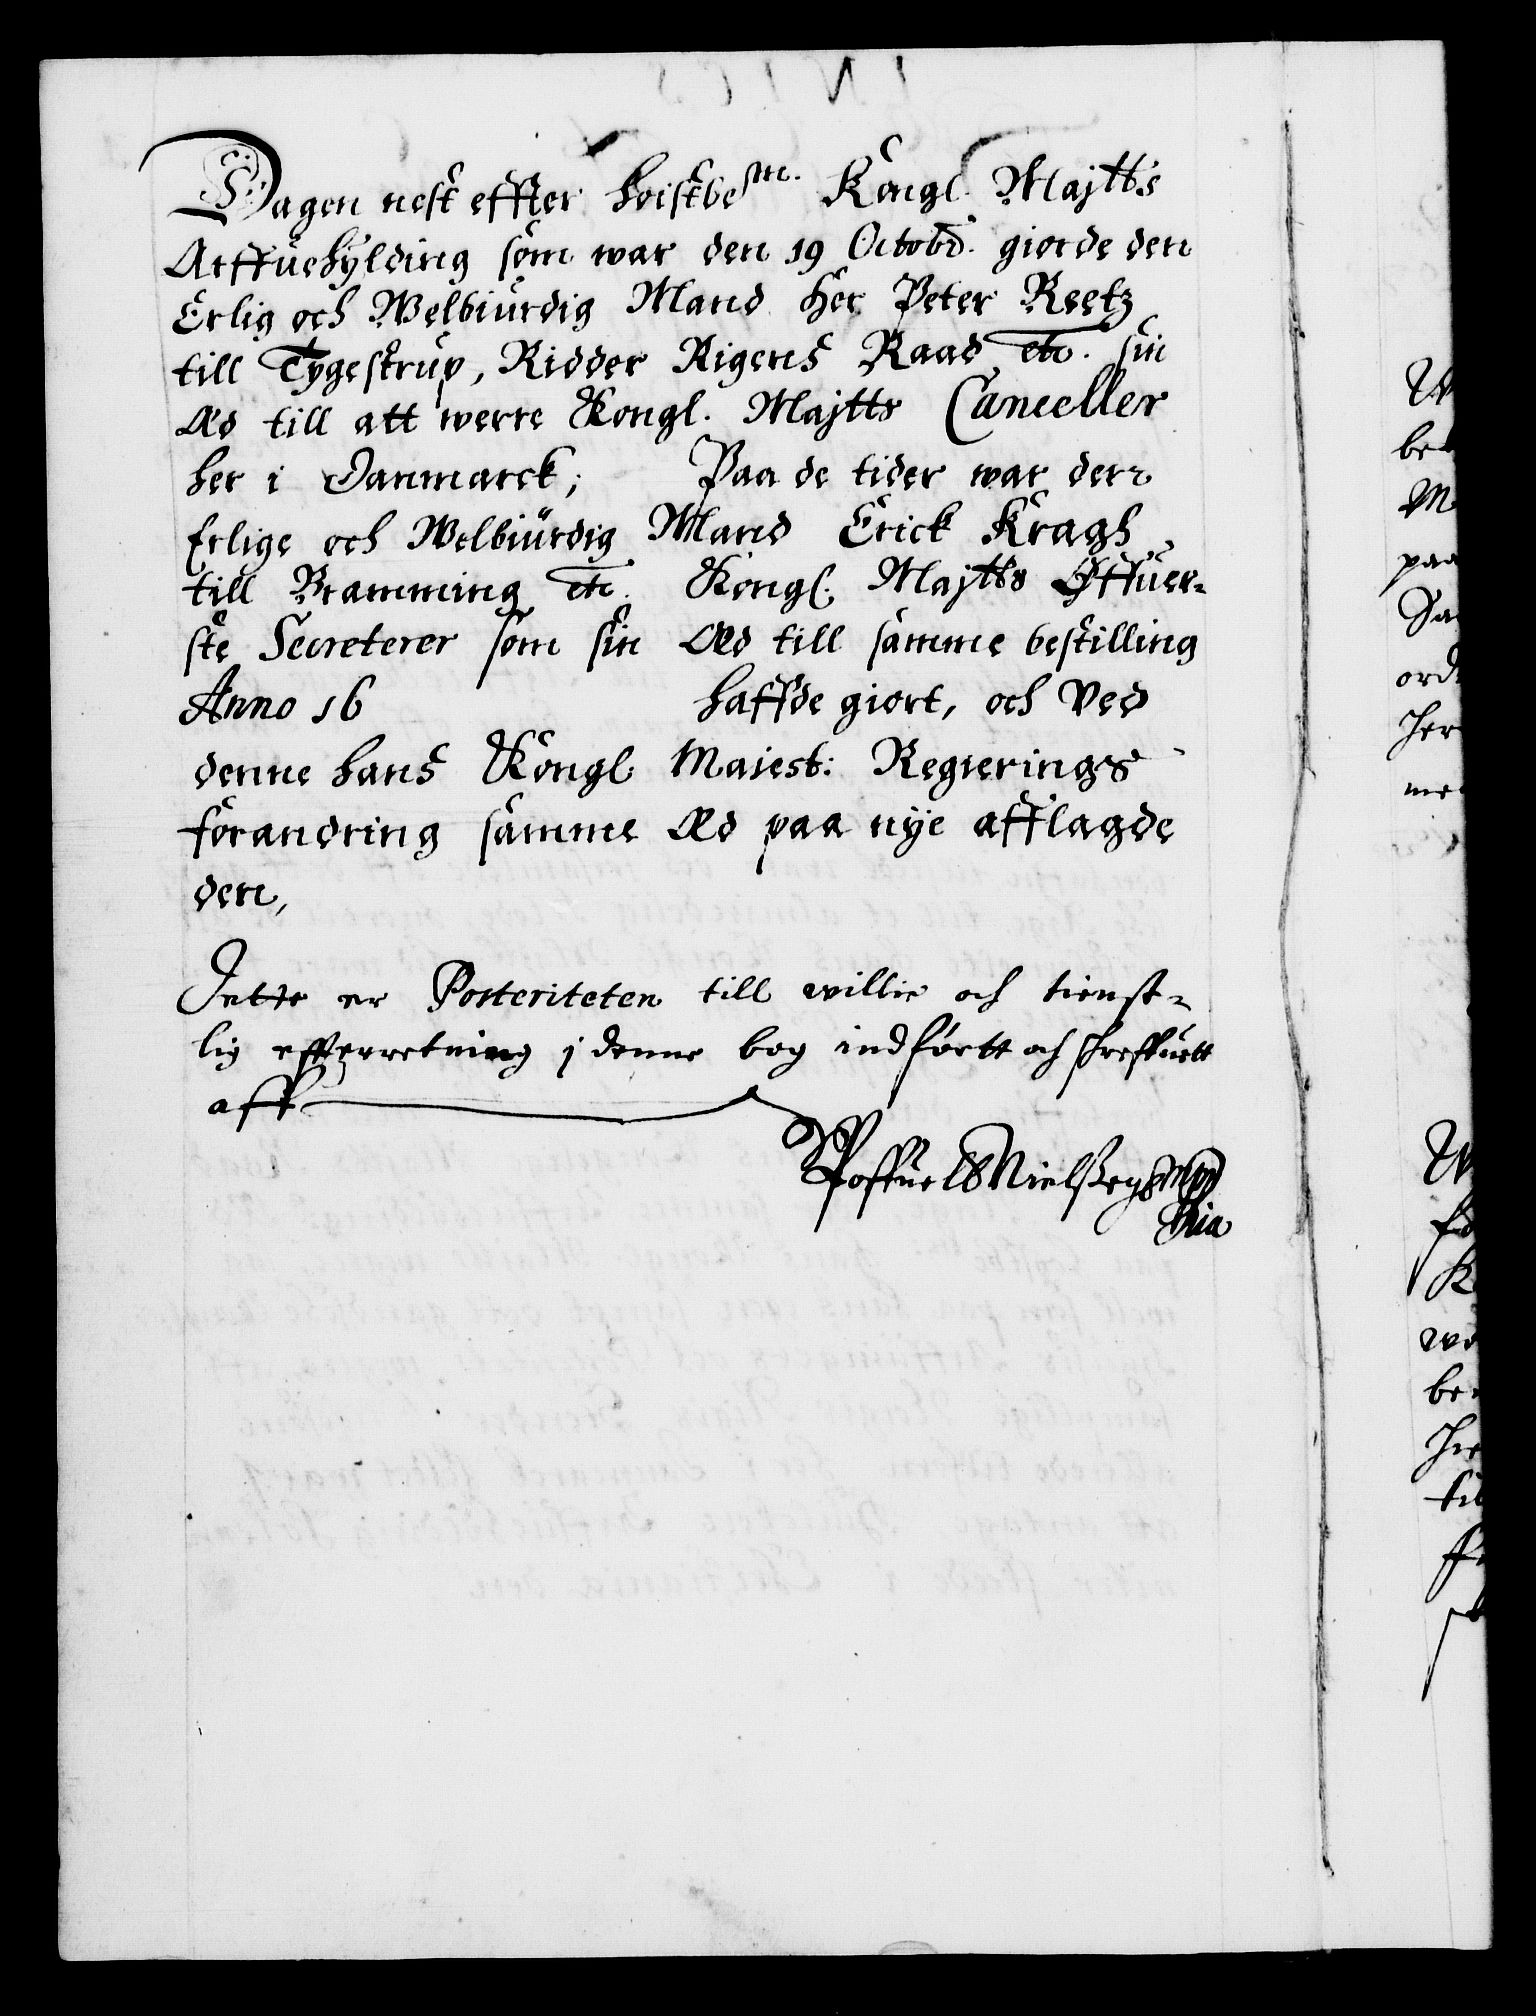 Dagen nest effter høistbe^me. Kongl. Majtts
Arffuehylding som war den 19 Octobr. giorde den
Erlig och Welbiurdig Mand Her Peter Reetz
till Tygestrup, Ridder Rigens Raad etc. sin
Æd till att werre Kongl. Majtts Canceller
her i Danmarck; Paa de tider war den
Erlige och Welbiurdig Mand Erick Kragh
till Bramming etc. Kongl. Majtts Øffuer-
ste Secreterer som sin Æd till samme bestilling
Anno 16 haffde giort, och Ved
denne hans Kongl. Majest: Regierings
forandring samme Æd paa nye afflagde
den,
Dette er Posteriteten till willie och tienst-
lig efterretning j denne bog indførtt och skreffuett
aff
Poffuell Nielßen